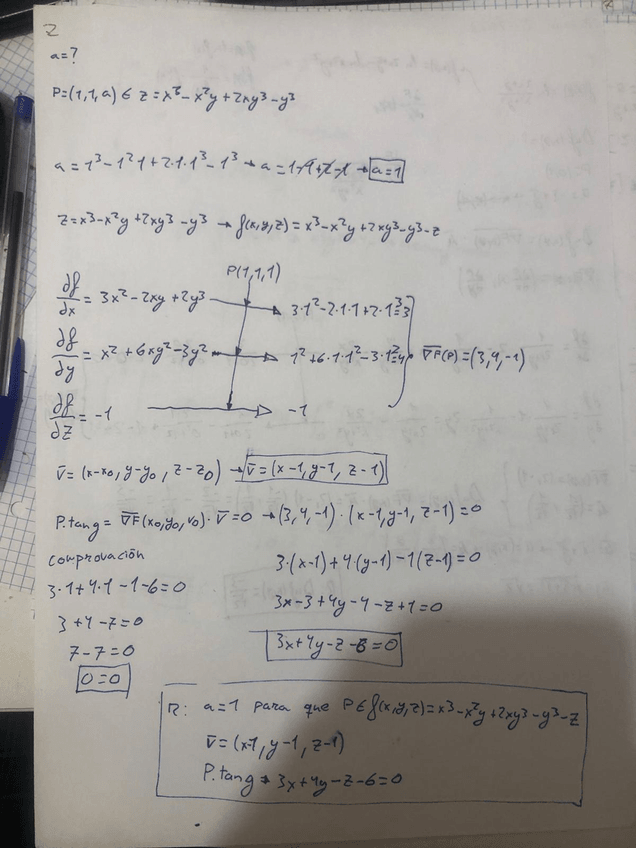 2
a=?
P=(1,1,a) ∈ z=x³-x²y+2xy³-y³
a=1³-1²1+2·1·1³-1³ → a=1-1+2-1 → a=1
z=x³-x²y+2xy³-y³ → f(x,y,z)=x³-x²y+2xy³-y³-z
P(1,1,1)
∂f/∂x = 3x²-2xy+2y³ → 3·1²-2·1·1+2·1³=3
∂f/∂y = x²+6xy²-3y² → 1²+6·1·1²-3·1²=4
∇F(P)=(3,4,-1)
∂f/∂z = -1 → -1
v̄=(x-x₀, y-y₀, z-z₀) → v̄=(x-1, y-1, z-1)
P.tang = ∇F(x₀,y₀,v₀)·v̄=0 → (3,4,-1)·(x-1,y-1,z-1)=0
comprovación
3·1+4·1-1-6=0
3+4-7=0
7-7=0
0=0
3·(x-1)+4(y-1)-1(z-1)=0
3x-3+4y-4-z+1=0
3x+4y-z-6=0
R: a=1 para que P∈f(x,y,z)=x³-x²y+2xy³-y³-z
v̄=(x-1, y-1, z-1)
P.tang → 3x+4y-z-6=0